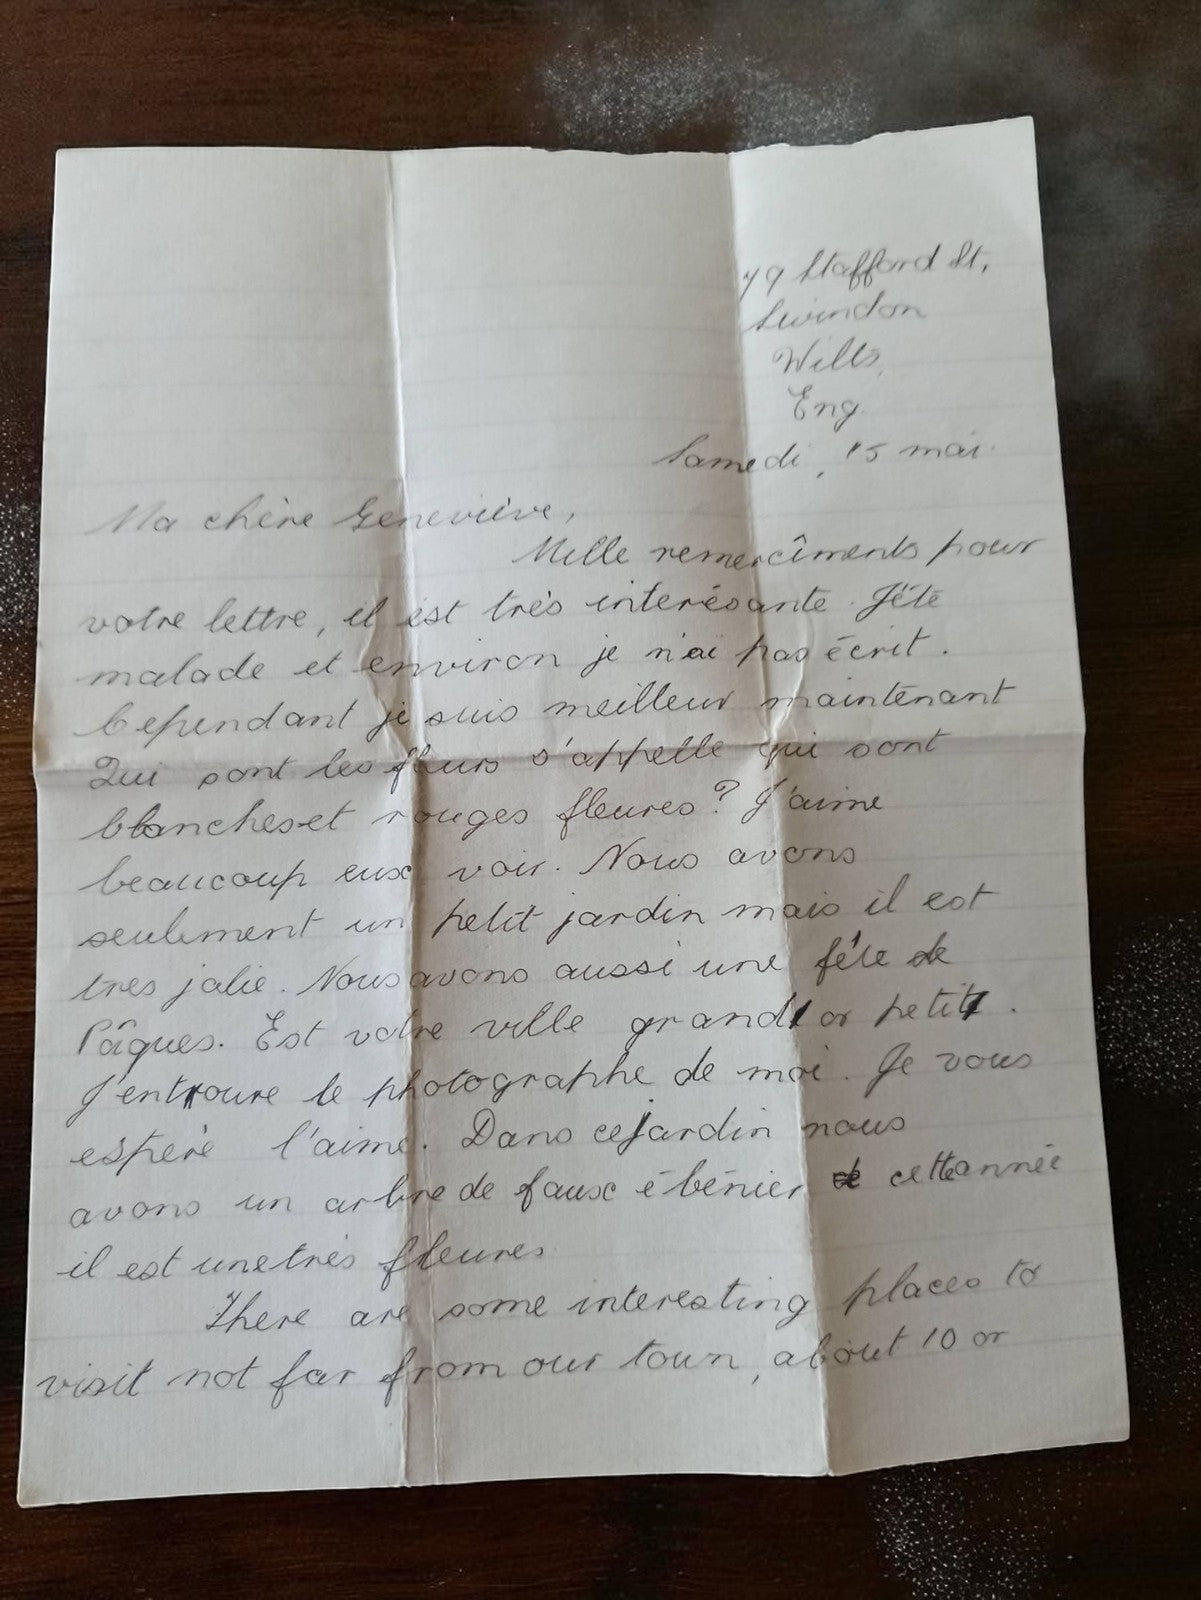 79 Stafford St,
Swindon
Wilts,
Eng
Samedi, 15 mai.
Ma chère Geneviève,
Mille remercîments pour
votre lettre, il est très interésante. J'été
malade et environ je n'ai pas écrit.
Cependant je suis meilleur maintenant
Qui sont les fleurs s'appelle qui sont
blanches et rouges fleures? J'aime
beaucoup eux voir. Nous avons
seulement un petit jardin mais il est
tres jolie. Nous avons aussi une fête de
Pâques. Est votre ville grand or petit.
J'entroure le photographe de moi. Je vous
espère l'aime. Dans ce jardin nous
avons un arbre de faux ébénier cette année
il est une très fleures
There are some interesting places to
visit not far from our town, about 10 or